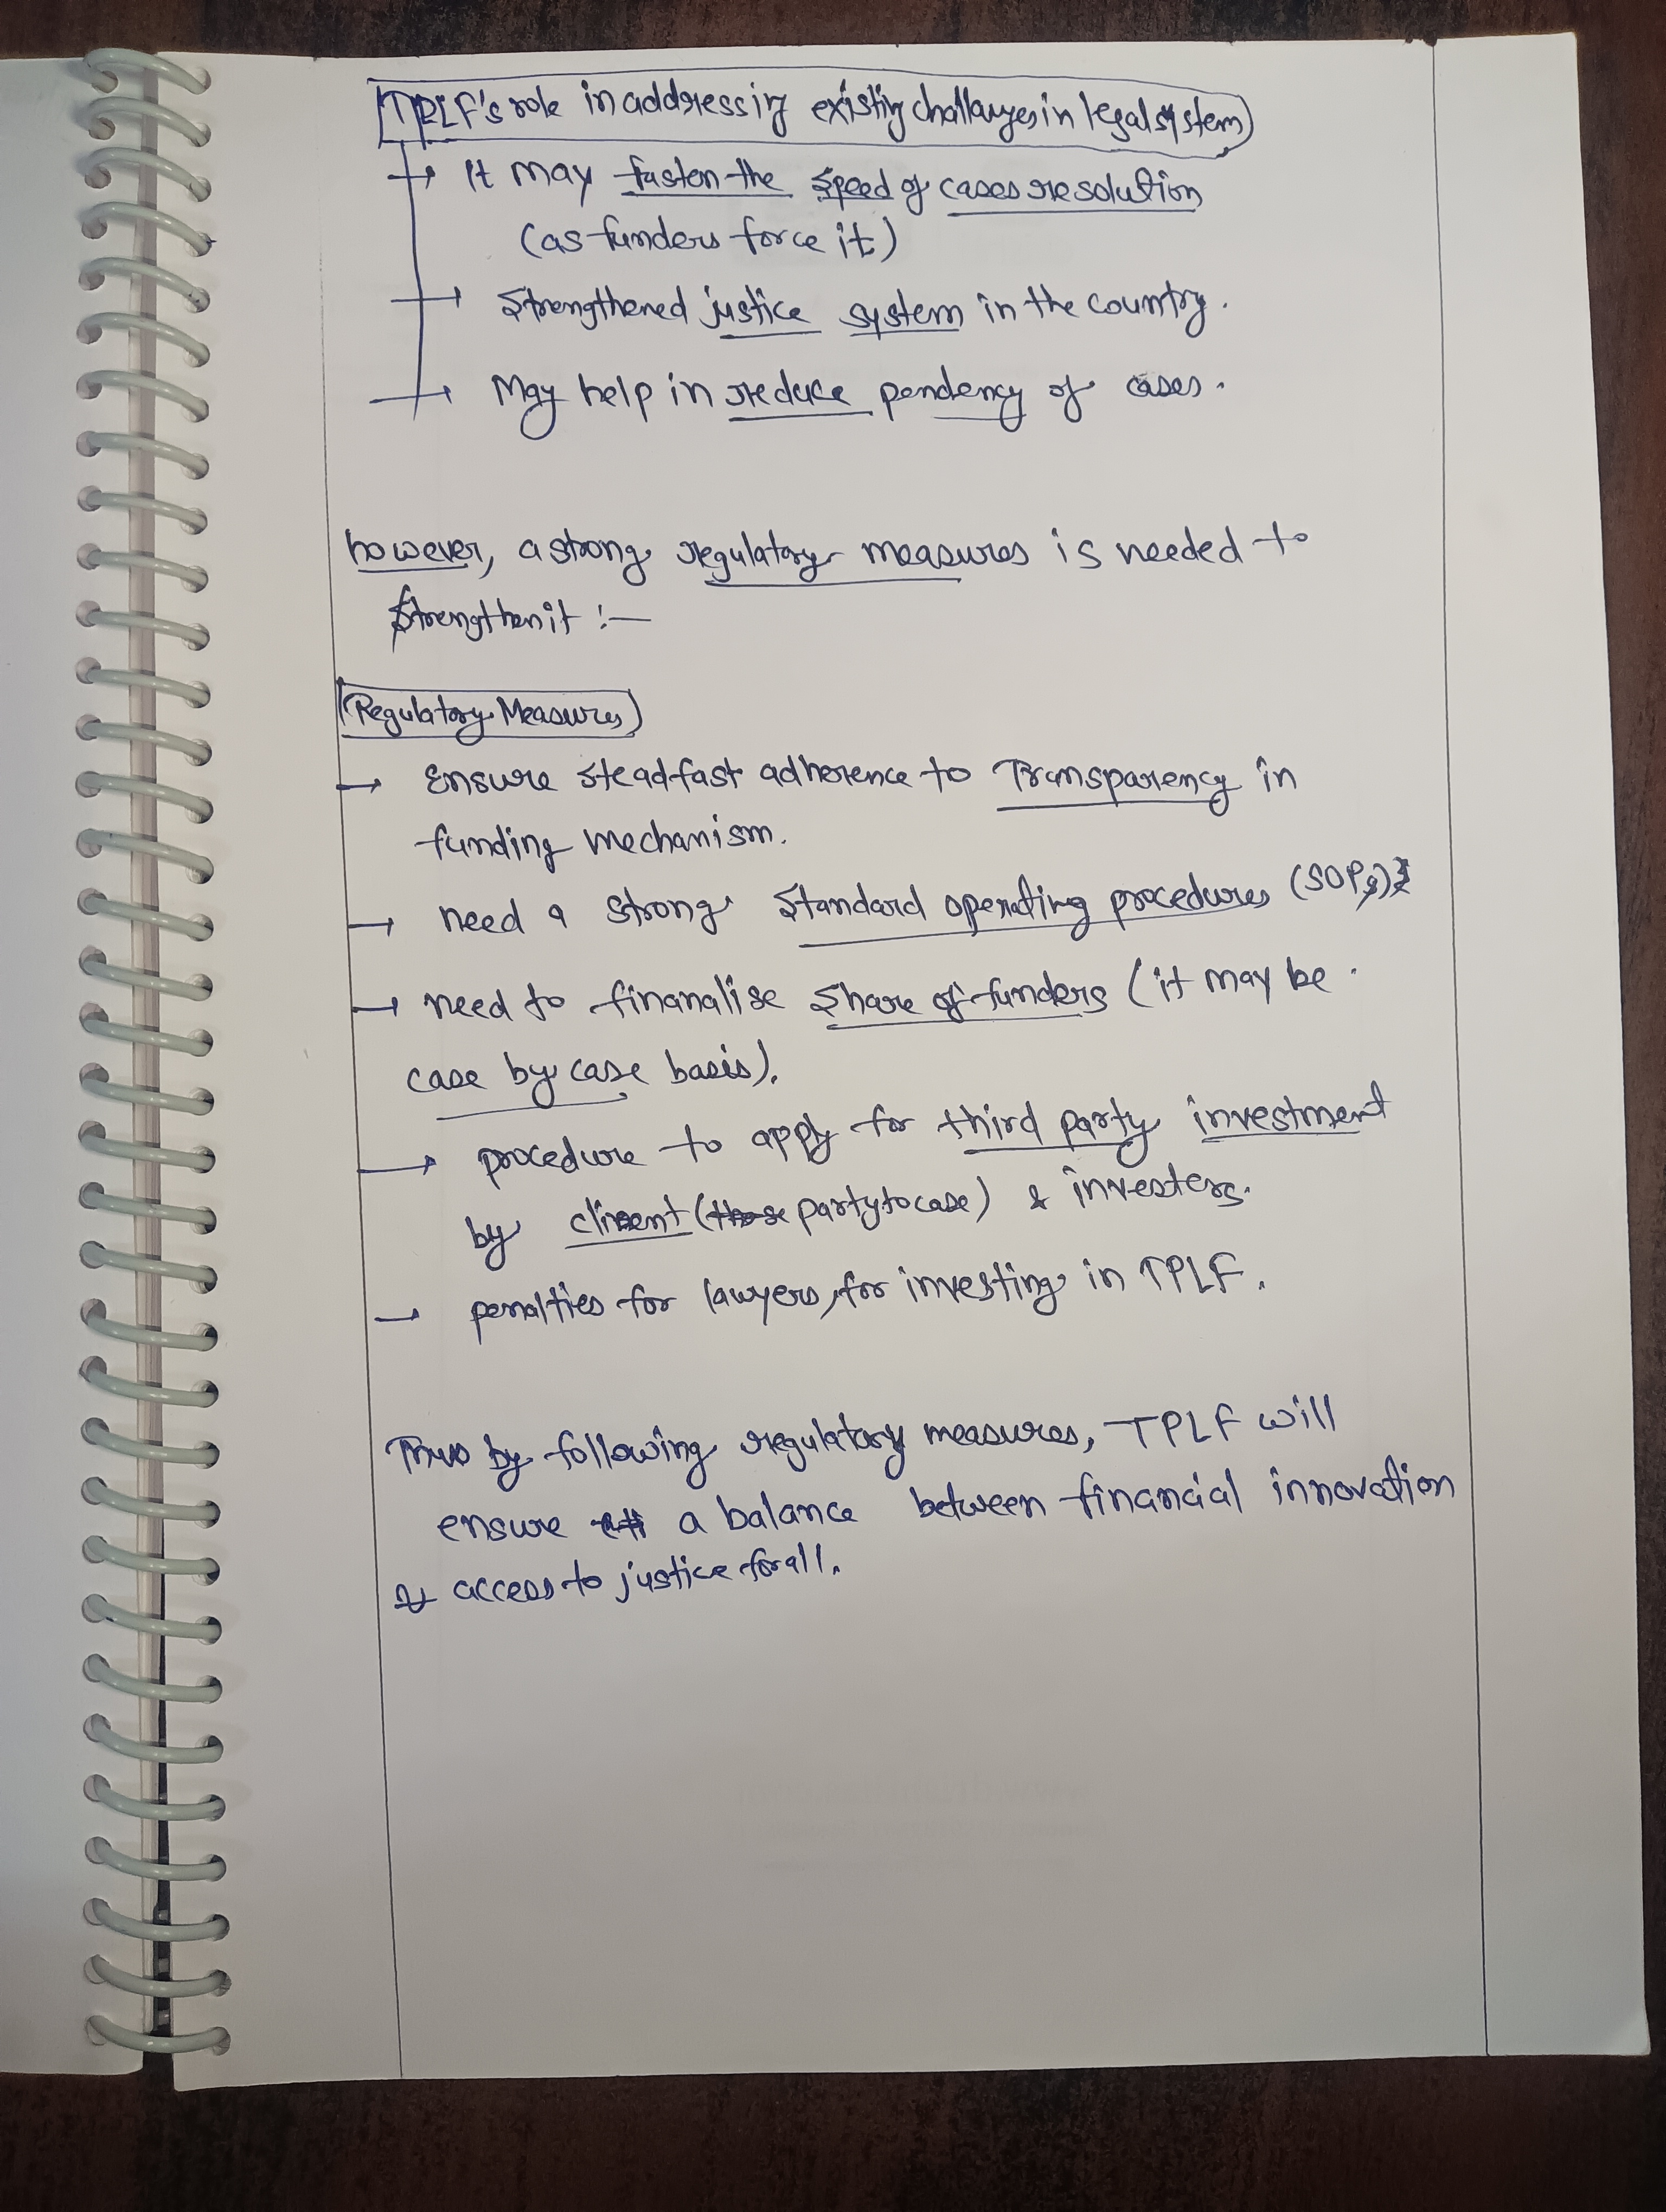 TPLF's role in addressing existing challanges in legal system
→ It may fasten the speed of cases resolution
(as funders force it)
→ Strengthened justice system in the country.
→ May help in reduce pendency of cases.
however, a strong regulatory measures is needed to
strengthen it :-
Regulatory Measures
→ Ensure steadfast adherence to Transparency in
funding mechanism.
→ need a strong standard operating procedures (SOPs)
→ need to finanalise share of funders (it may be
case by case basis).
→ procedure to apply for third party investment
by client (those party to case) & investers.
→ penalties for lawyers, for investing in TPLF.
Thus by following regulatory measures, TPLF will
ensure a balance between financial innovation
& access to justice for all.